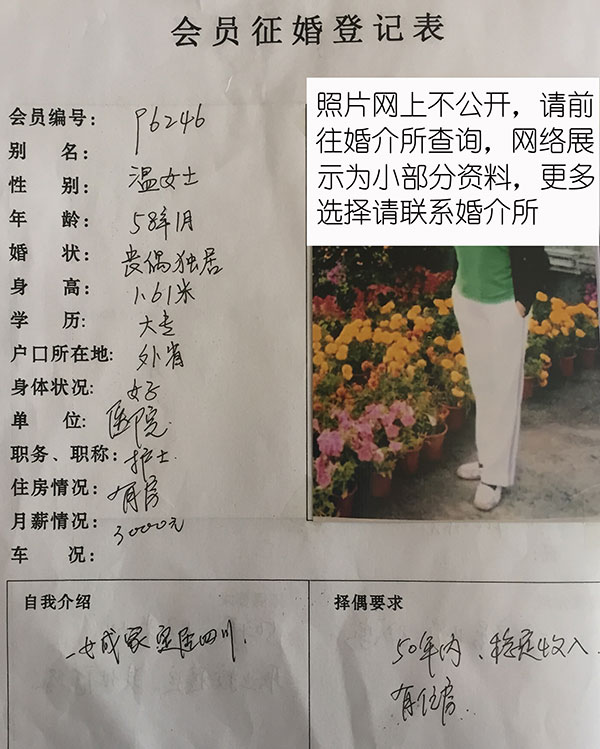 会员征婚登记表
照片网上不公开，请前
往婚介所查询，网络展
示为小部分资料，更多
选择请联系婚介所
会员编号： P6246
别 名：
性 别： 温女士
年 龄： 58年1月
婚 状： 丧偶独居
身 高： 1.61米
学 历： 大专
户口所在地: 外省
身体状况: 好
单 位: 医院
职务、职称: 护士
住房情况: 有房
月薪情况: 3000元
车 况:
自我介绍
一女成家定居四川.
择偶要求
50年内、稳定收入、
有住房